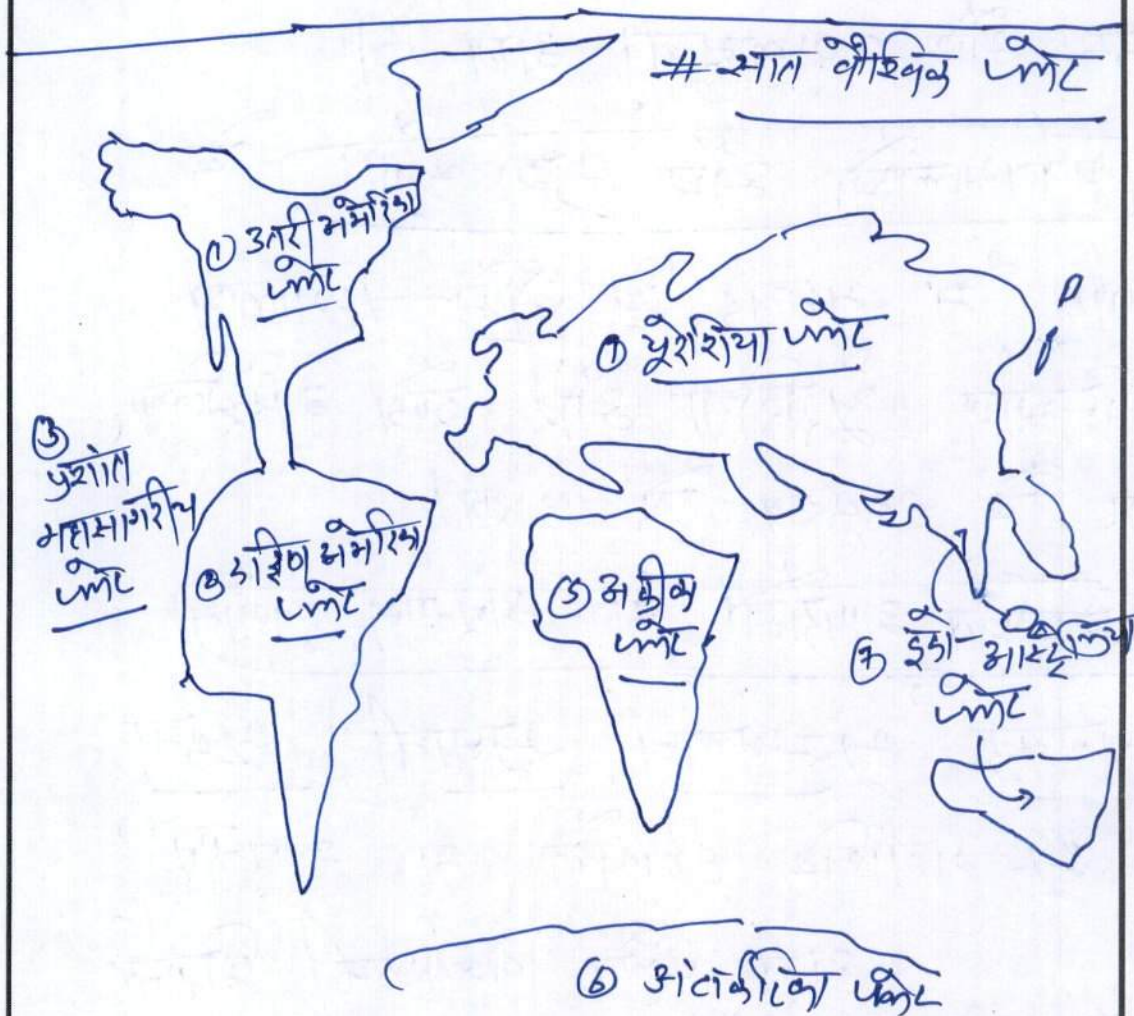 # सात वैश्विक प्लेट
① उत्तरी अमेरिका
प्लेट
① यूरेशिया प्लेट
③
प्रशांत
महासागरीय
प्लेट
② दक्षिण अमेरिका
प्लेट
⑤ अफ्रीका
प्लेट
⑦ इंडो-आस्ट्रेलिया
प्लेट
⑥ अंटार्कटिका प्लेट